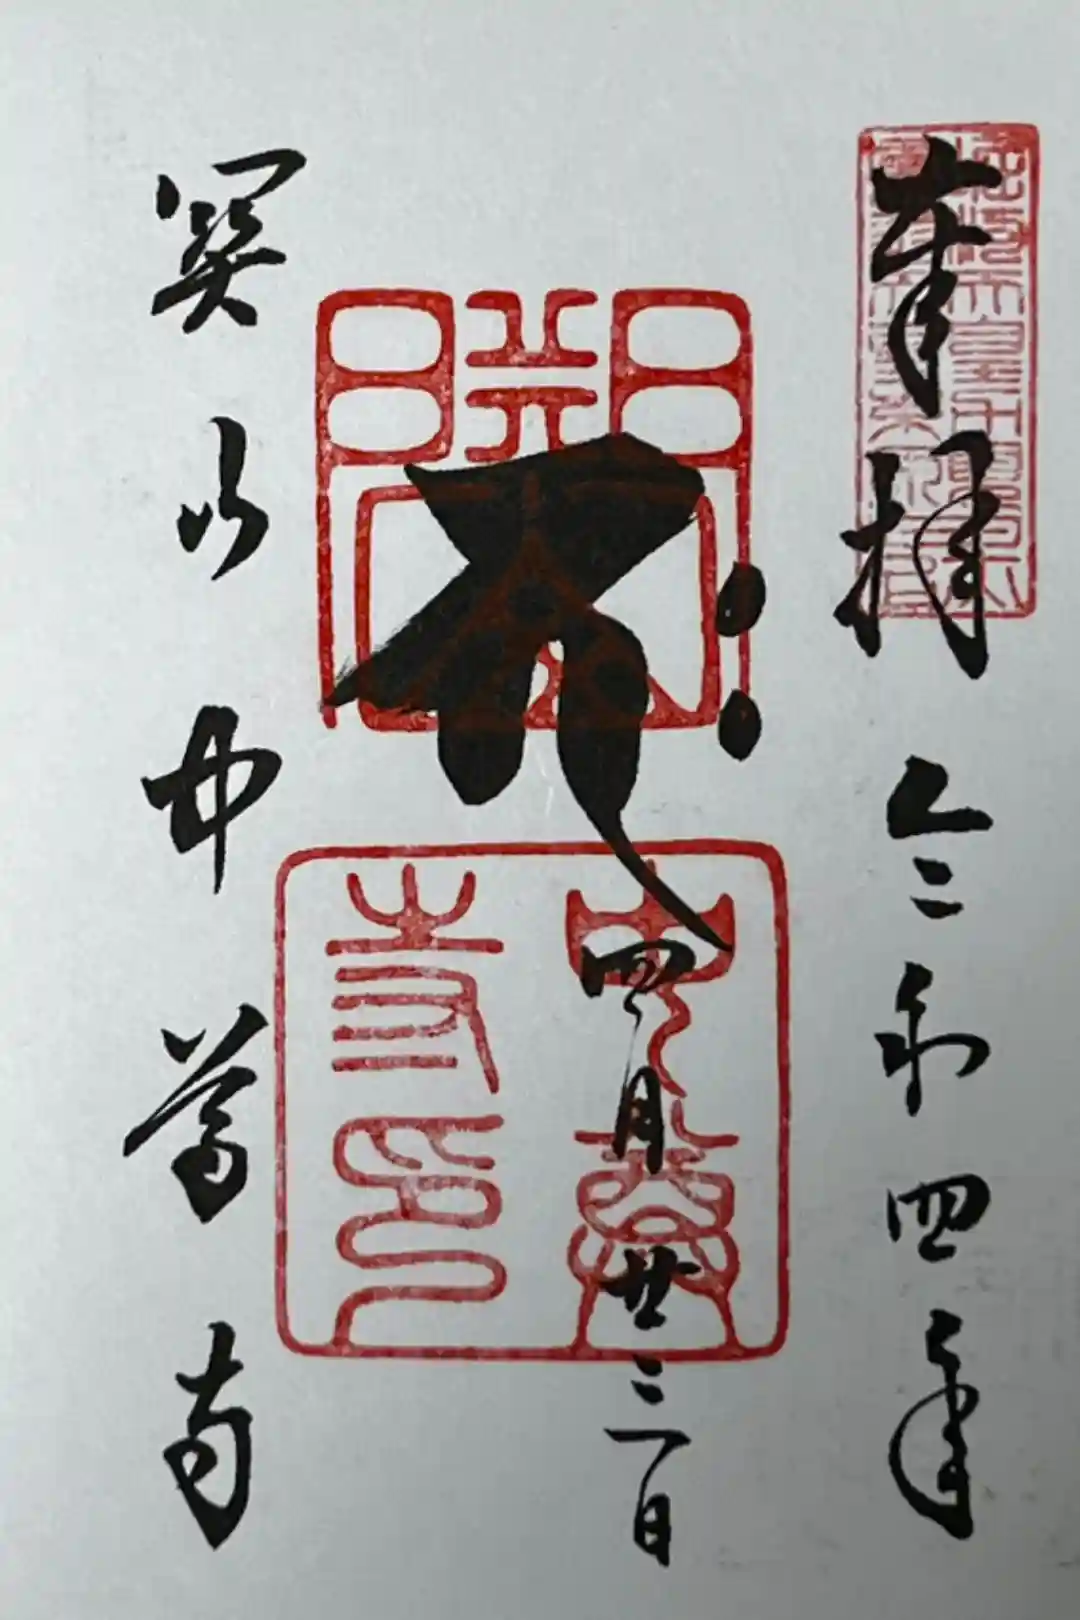 奉拝 令和四年
四月廿三日
關山
中尊
寺印
関山中尊寺